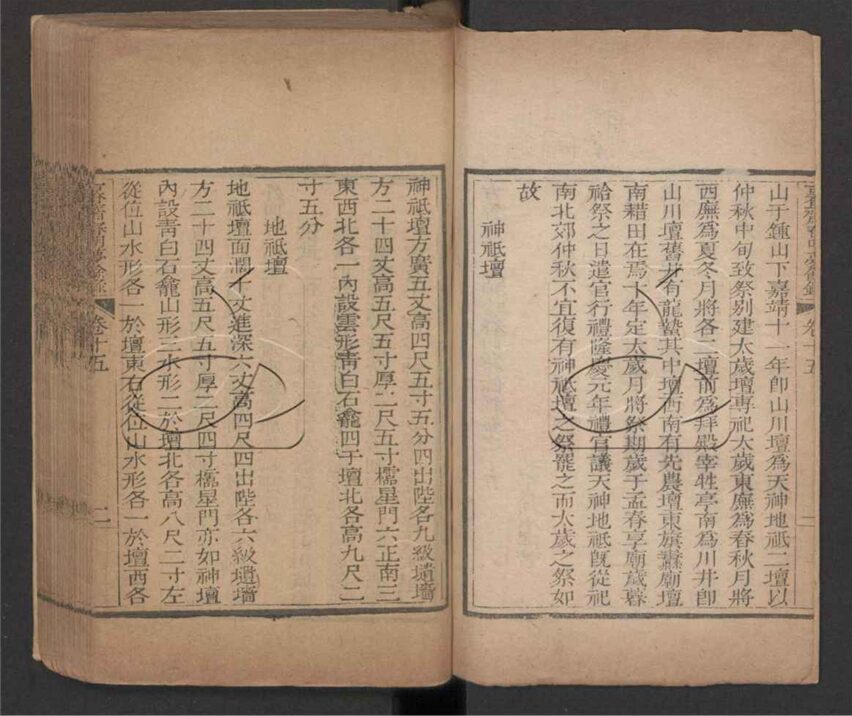 山于鍾山下嘉靖十一年卽山川壇爲天神地祇二壇以
仲秋中旬致祭别建太歲壇專祀太歲東廡爲春秋月將
西廡爲夏冬月將各二壇前爲拜殿宰牲亭南爲川井卽
山川壇舊井有龍蟄其中壇西南有先農壇東旗纛廟壇
南耤田在焉十年定太歲月將祭期歲于孟春享廟歲暮
祫祭之日遣官行禮隆慶元年禮官議天神地祇旣從祀
南北郊仲秋不宜復有神祇壇之祭罷之而太歲之祭如
故
神祇壇
神祇壇方廣五丈高四尺五寸五分四出陛各九級壝墻
方二十四丈高五尺五寸厚二尺五寸櫺星門六正南三
東西北各一內設雲形靑白石龕四于壇北各高九尺二
寸五分
地祇壇
地祇壇面濶十丈進深六丈高四尺四出陛各六級壝墻
方二十四丈高五尺五寸厚二尺四寸櫺星門亦如神壇
內設靑白石龕山形三水形二於壇北各高八尺二寸左
從位山水形各一於壇東右從位山水形各一於壇西各
春明夢餘錄
卷十五
二